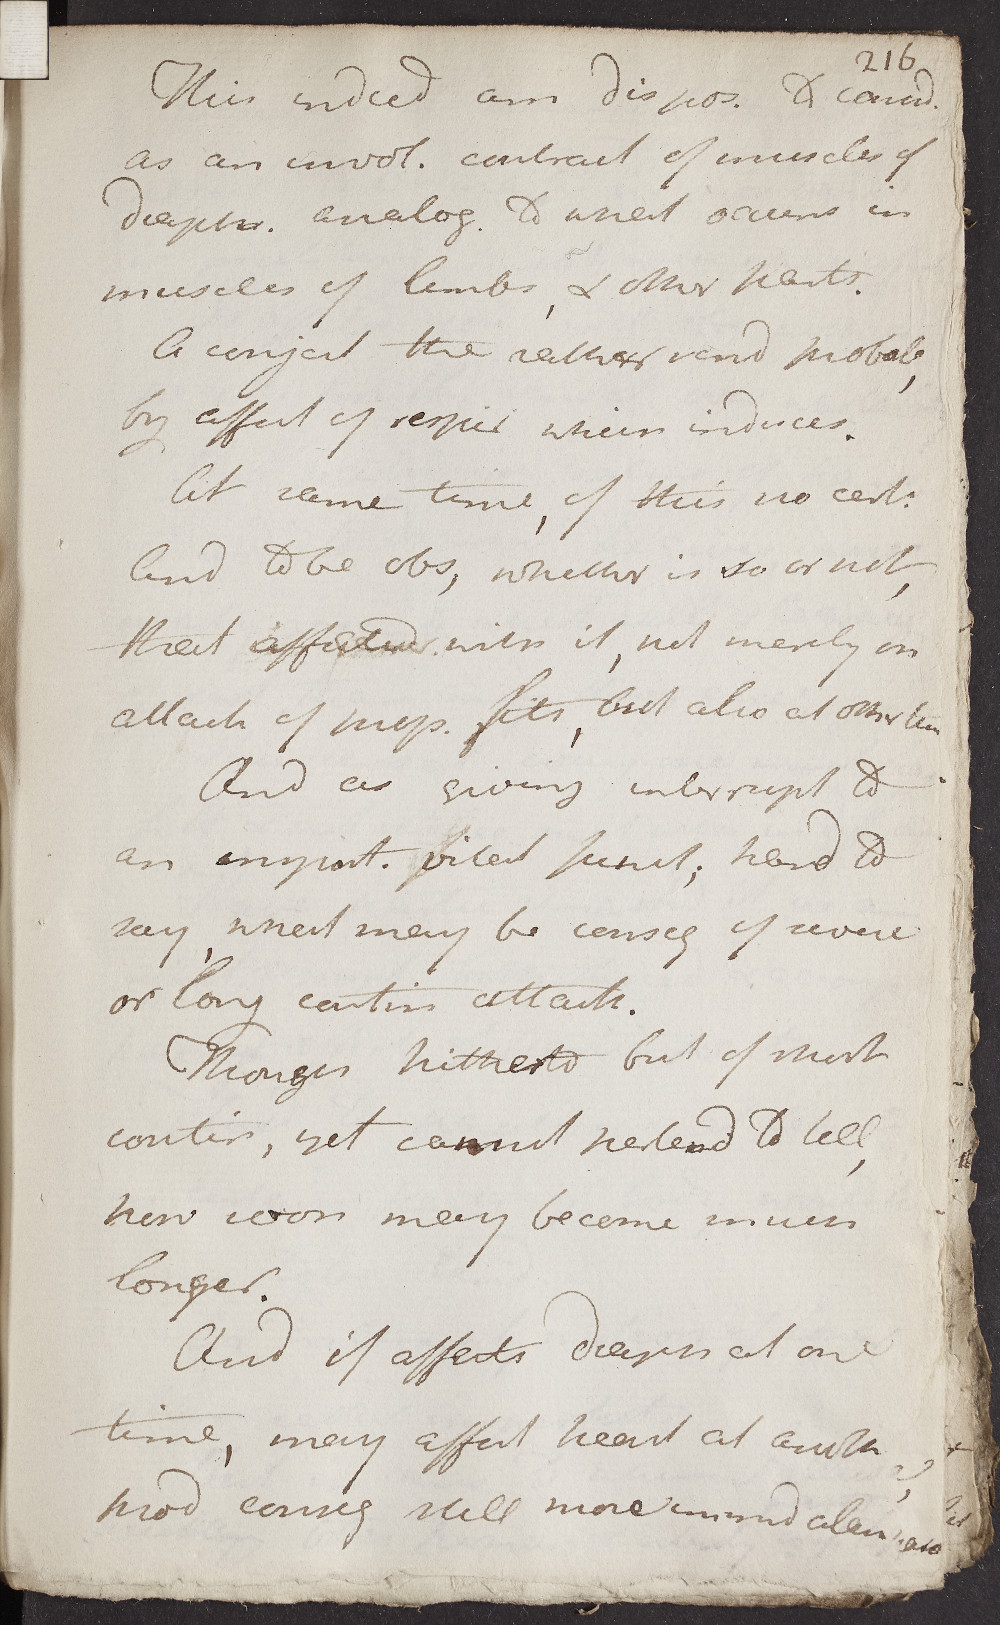 216
This indeed am dispos. to consid.
as an invol. contract of muscles of
diaphr. analog. to what occurs in
muscles of limbs, & other parts.
A conject the rather rend probab,
by effect of respir which induces.
At same time, of this no cert:
And to be obs, whether is so or not,
that affected with it, not merely on
attack of prop. fits, but also at other tim
And as giving interrupt to
an import. vital funct; hard to
say, what may be conseq of severe
or long contin attack.
Though hitherto but of short
contin, yet cannot pretend to tell,
how soon may become much
longer.
And if affects diaphr at one
time, may affect heart at anoth
prod conseq still more immed alarm